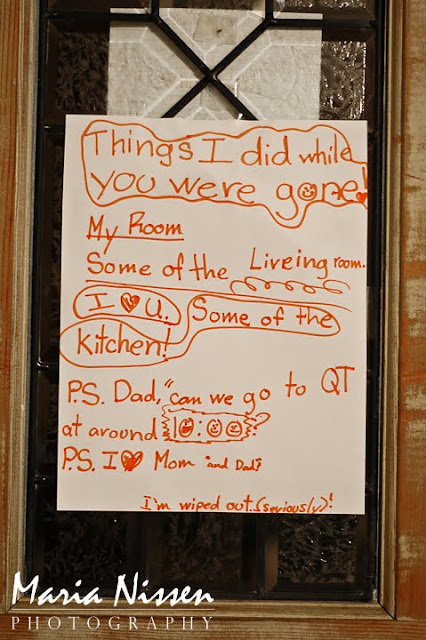 Things I did while
you were gone!
My Room
Some of the Liveing room.
I ♥ U. Some of the
kitchen!
P.S. Dad, "can we go to QT
at around 10:00?
P.S. I ♥ Mom "and Dad"
I'm wiped out..(seriously)!
Maria Nissen
PHOTOGRAPHY